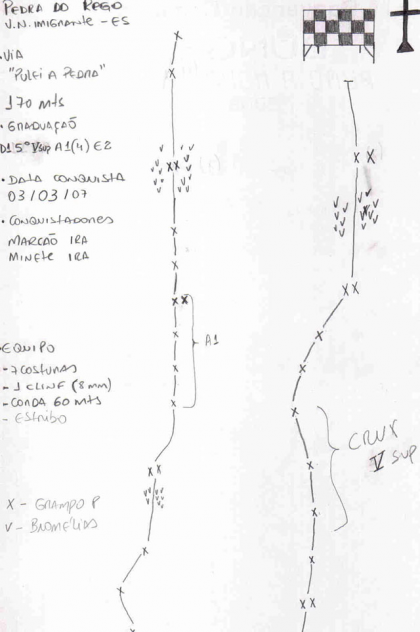 PEDRA DO REGO
V.N. IMIGRANTE - ES
• VIA
"PULEI A PEDRA"
170 mts
• GRADUAÇÃO
D1 5° Vsup A1(4) E2
• DATA CONQUISTA
03/03/07
• CONQUISTADORES
MARCÃO IRA
MINETE IRA
A1
• EQUIPO
- 7 COSTURAS
- 1 CLIFF (8mm)
- CORDA 60 MTS
- ESTRIBO
CRUX
V SUP
X - GRAMPO P
V - BROMÉLIAS